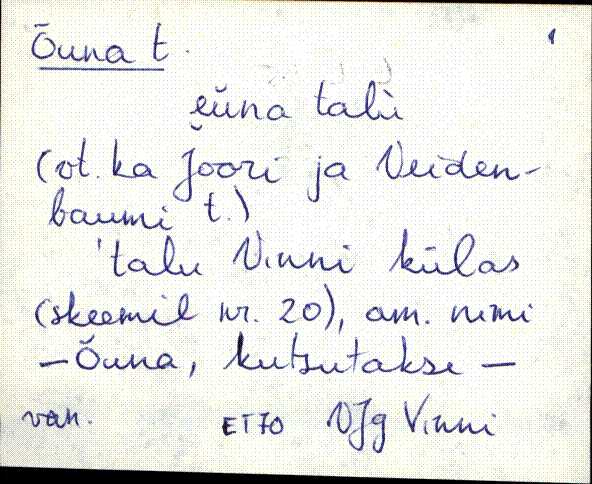 Õuna t. 1
eŭna talu
(vt. ka Joori ja Veiden-
baumi t.)
'talu Vinni külas
(skeemil nr. 20), am. nimi
— Õuna, kutsutakse —
van. ET70 VJg Vinni